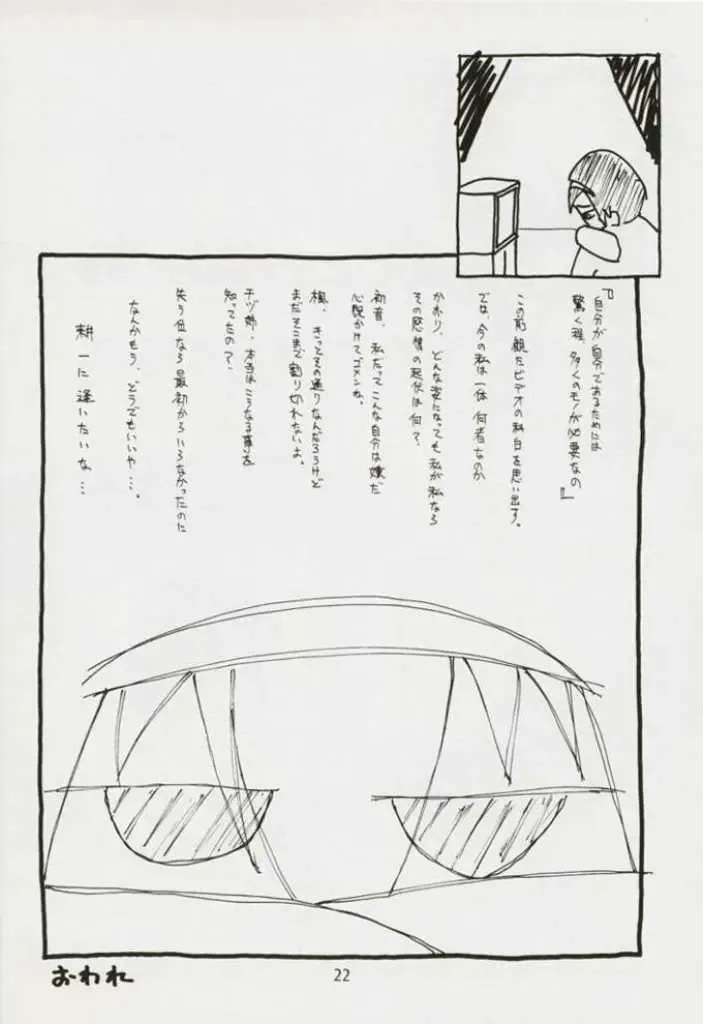 『自分が自分であるためには
驚く程、多くのモノが必要なの』
この前観たビデオの科白を思い出す。
では、今の私は一体何者なのか
かおり、どんな姿になっても私が私なら
その感情の起伏は何？
初音、私だってこんな自分は嫌だ
心配かけてゴメンね。
楓、きっとその通りなんだろうけど
まだそこまで割り切れないよ。
チヅ姉、本当はこうなる事を
知ってたの？、
失う位なら最初からいらなかったのに
なんかもう、どうでもいいや…。
耕一に逢いたいな…
おわれ
22